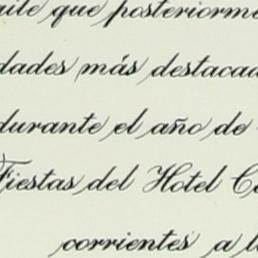 que posteriorme
dades más destacad
durante el año de
Fiestas del Hotel C
corrientes a l